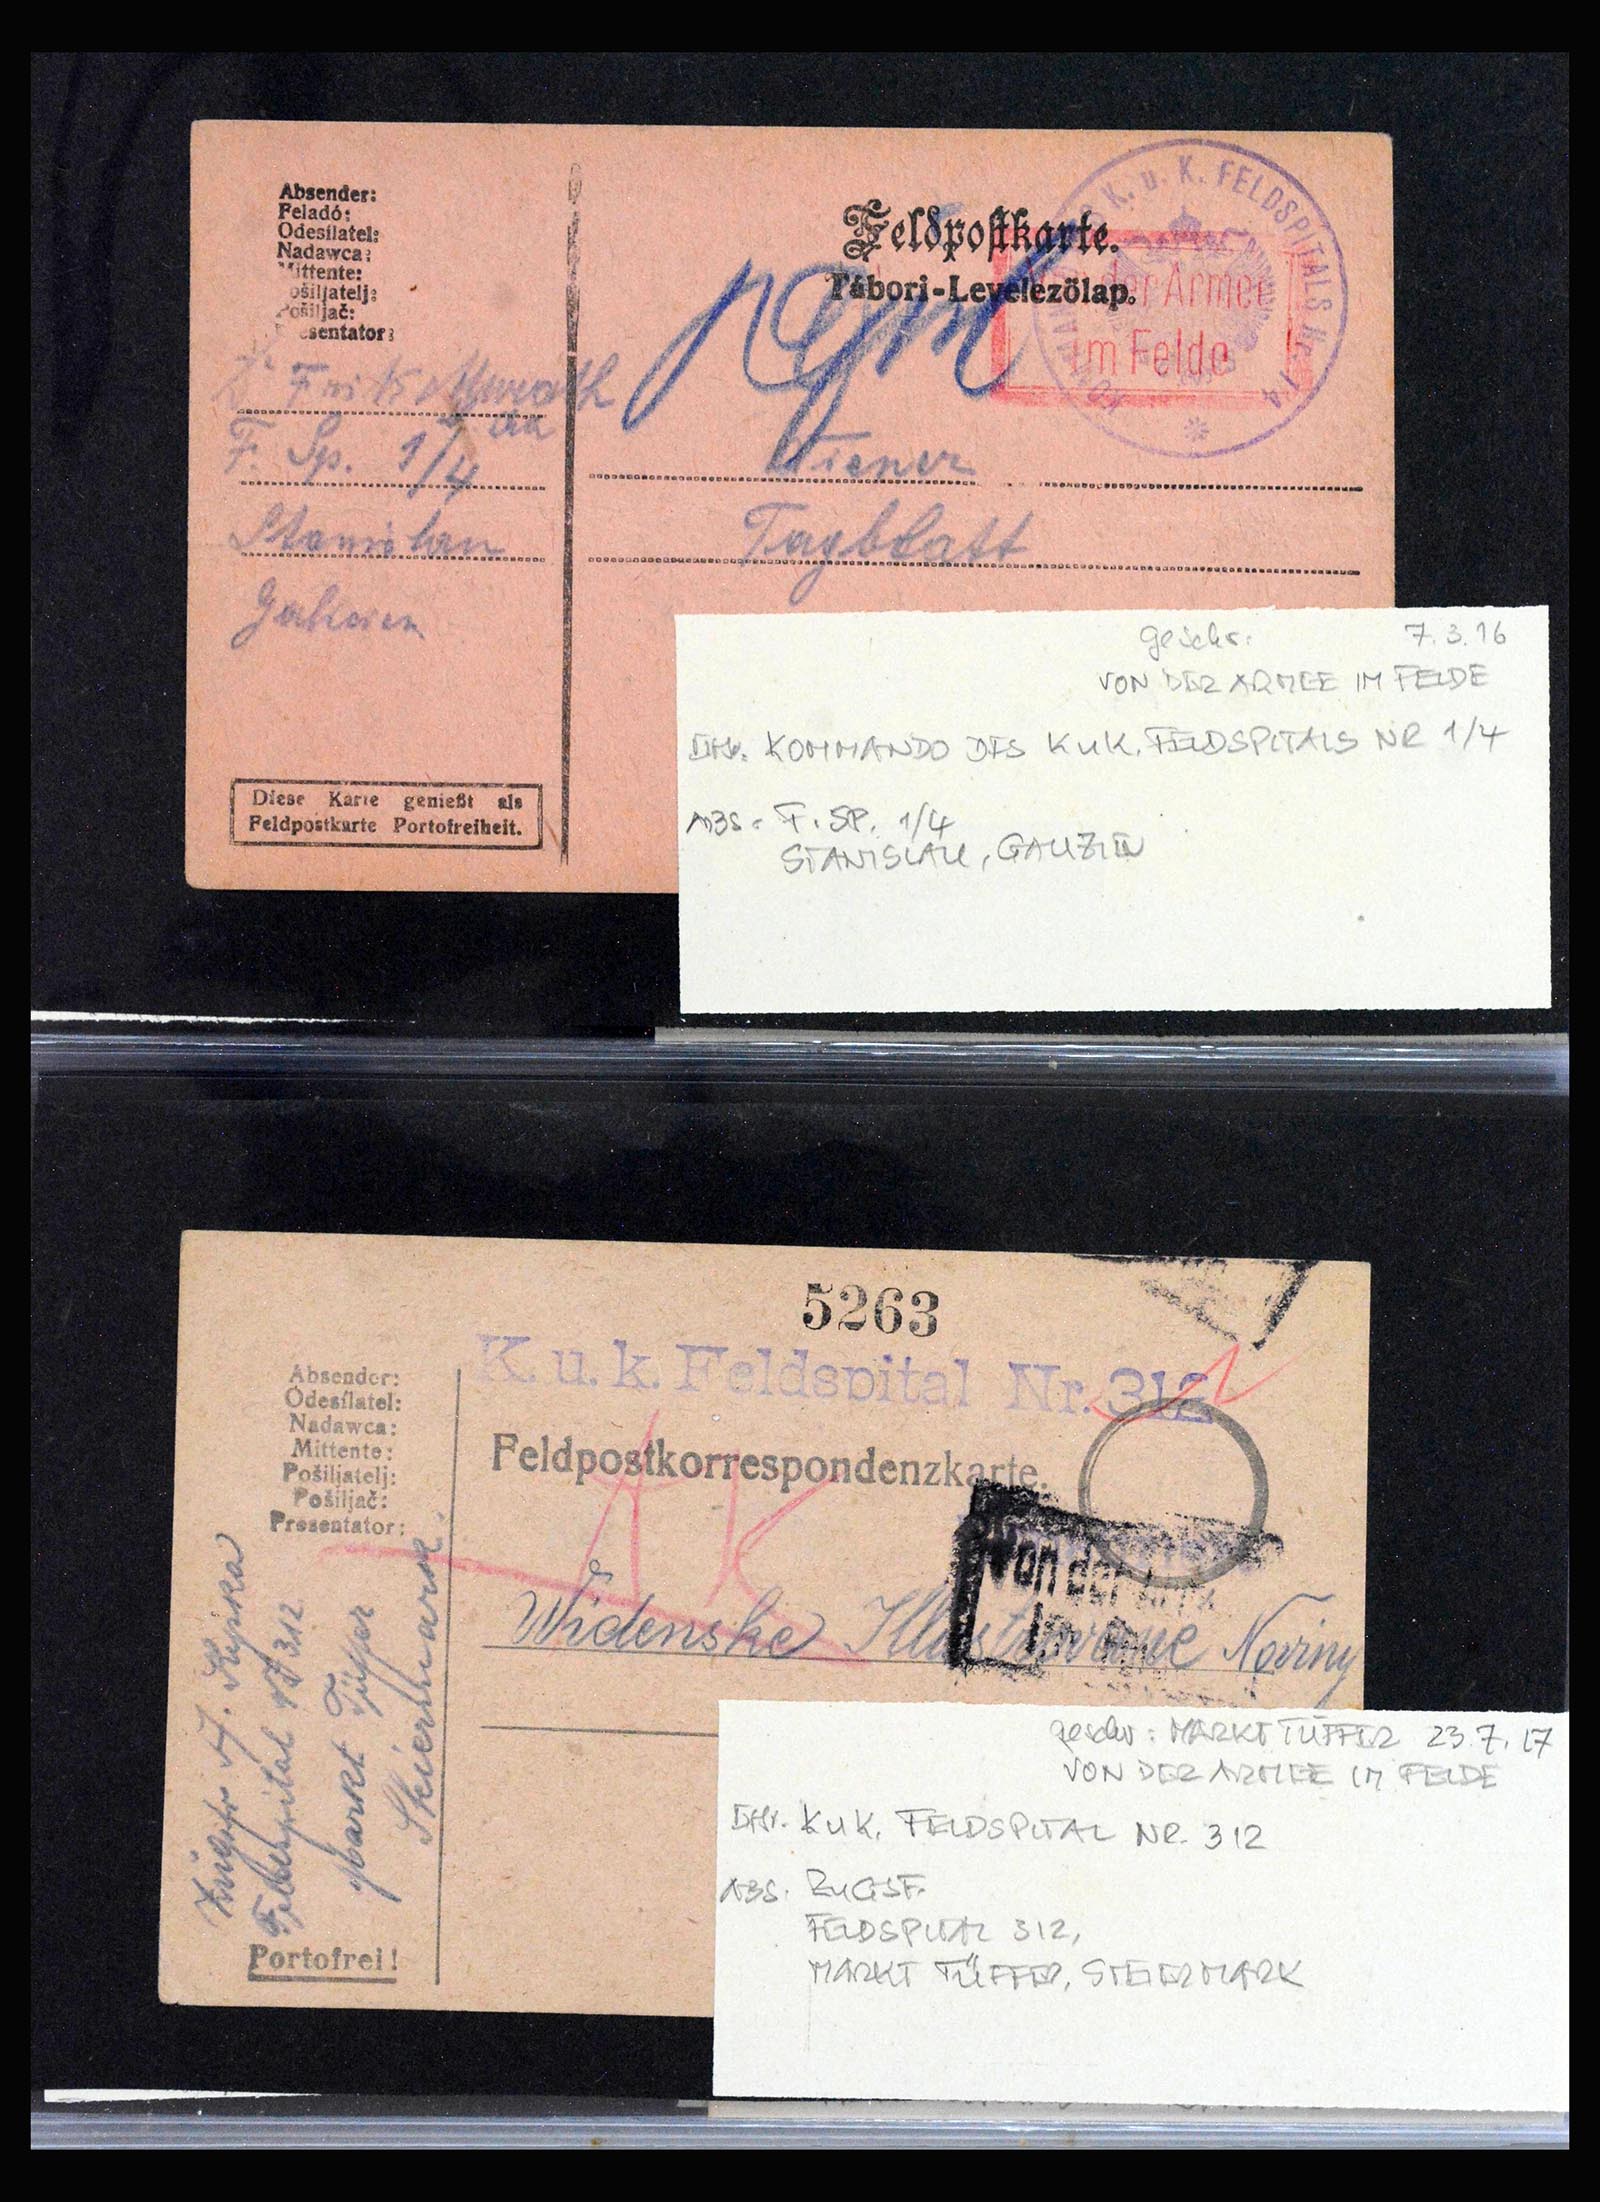 Absender:
Feladó:
Odesílatel:
Nadawca:
Mittente:
ošiljatelj:
Pošiljač:
esentator:
Feldpostkarte.
Tábori-Levelezölap.
KOMMANDO DES K. u. K. FELDSPITALS Nr. 1/4
der Armee
im Felde
Dr Fritz
F. Sp. 1/4
Stanislau
Galizien
Wiener
Tagblatt
Diese Karte genießt als
Feldpostkarte Portofreiheit.
geschr. 7.3.16
VON DER ARMEE IM FELDE
KOMMANDO DES KuK. FELDSPITALS NR 1/4
ABS. F. SP. 1/4
STANISLAU, GALIZIEN
5263
K. u. k. Feldspital Nr. 312
Absender:
Odesílatel:
Nadawca:
Mittente:
Pošiljatelj:
Pošiljač:
Presentator:
Feldpostkorrespondenzkarte.
Von der
Im
Vídenske Illustrovane Noviny
Feldspital 312
Markt Tüffer
Steiermark.
Portofrei!
geschr: MARKT TÜFFER 23.7.17
VON DER ARMEE IM FELDE
KuK. FELDSPITAL NR. 312
ABS. ZUGSF.
FELDSPITAL 312,
MARKT TÜFFER, STEIERMARK